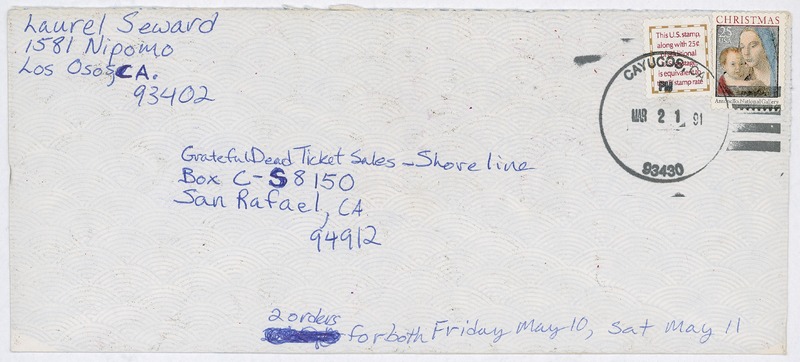 Laurel Seward
1581 Nipomo
Los Osos, CA.
93402
This U.S. stamp,
along with 25¢
of additional
is equivalent
stamp rate
CHRISTMAS
25
USA
Antonello, National Gallery
CAYUCOS, CA
PM
MAR 21 91
93430
Grateful Dead Ticket Sales - Shoreline
Box C-S8150
San Rafael, CA
94912
2 orders
for both Friday May 10, Sat May 11